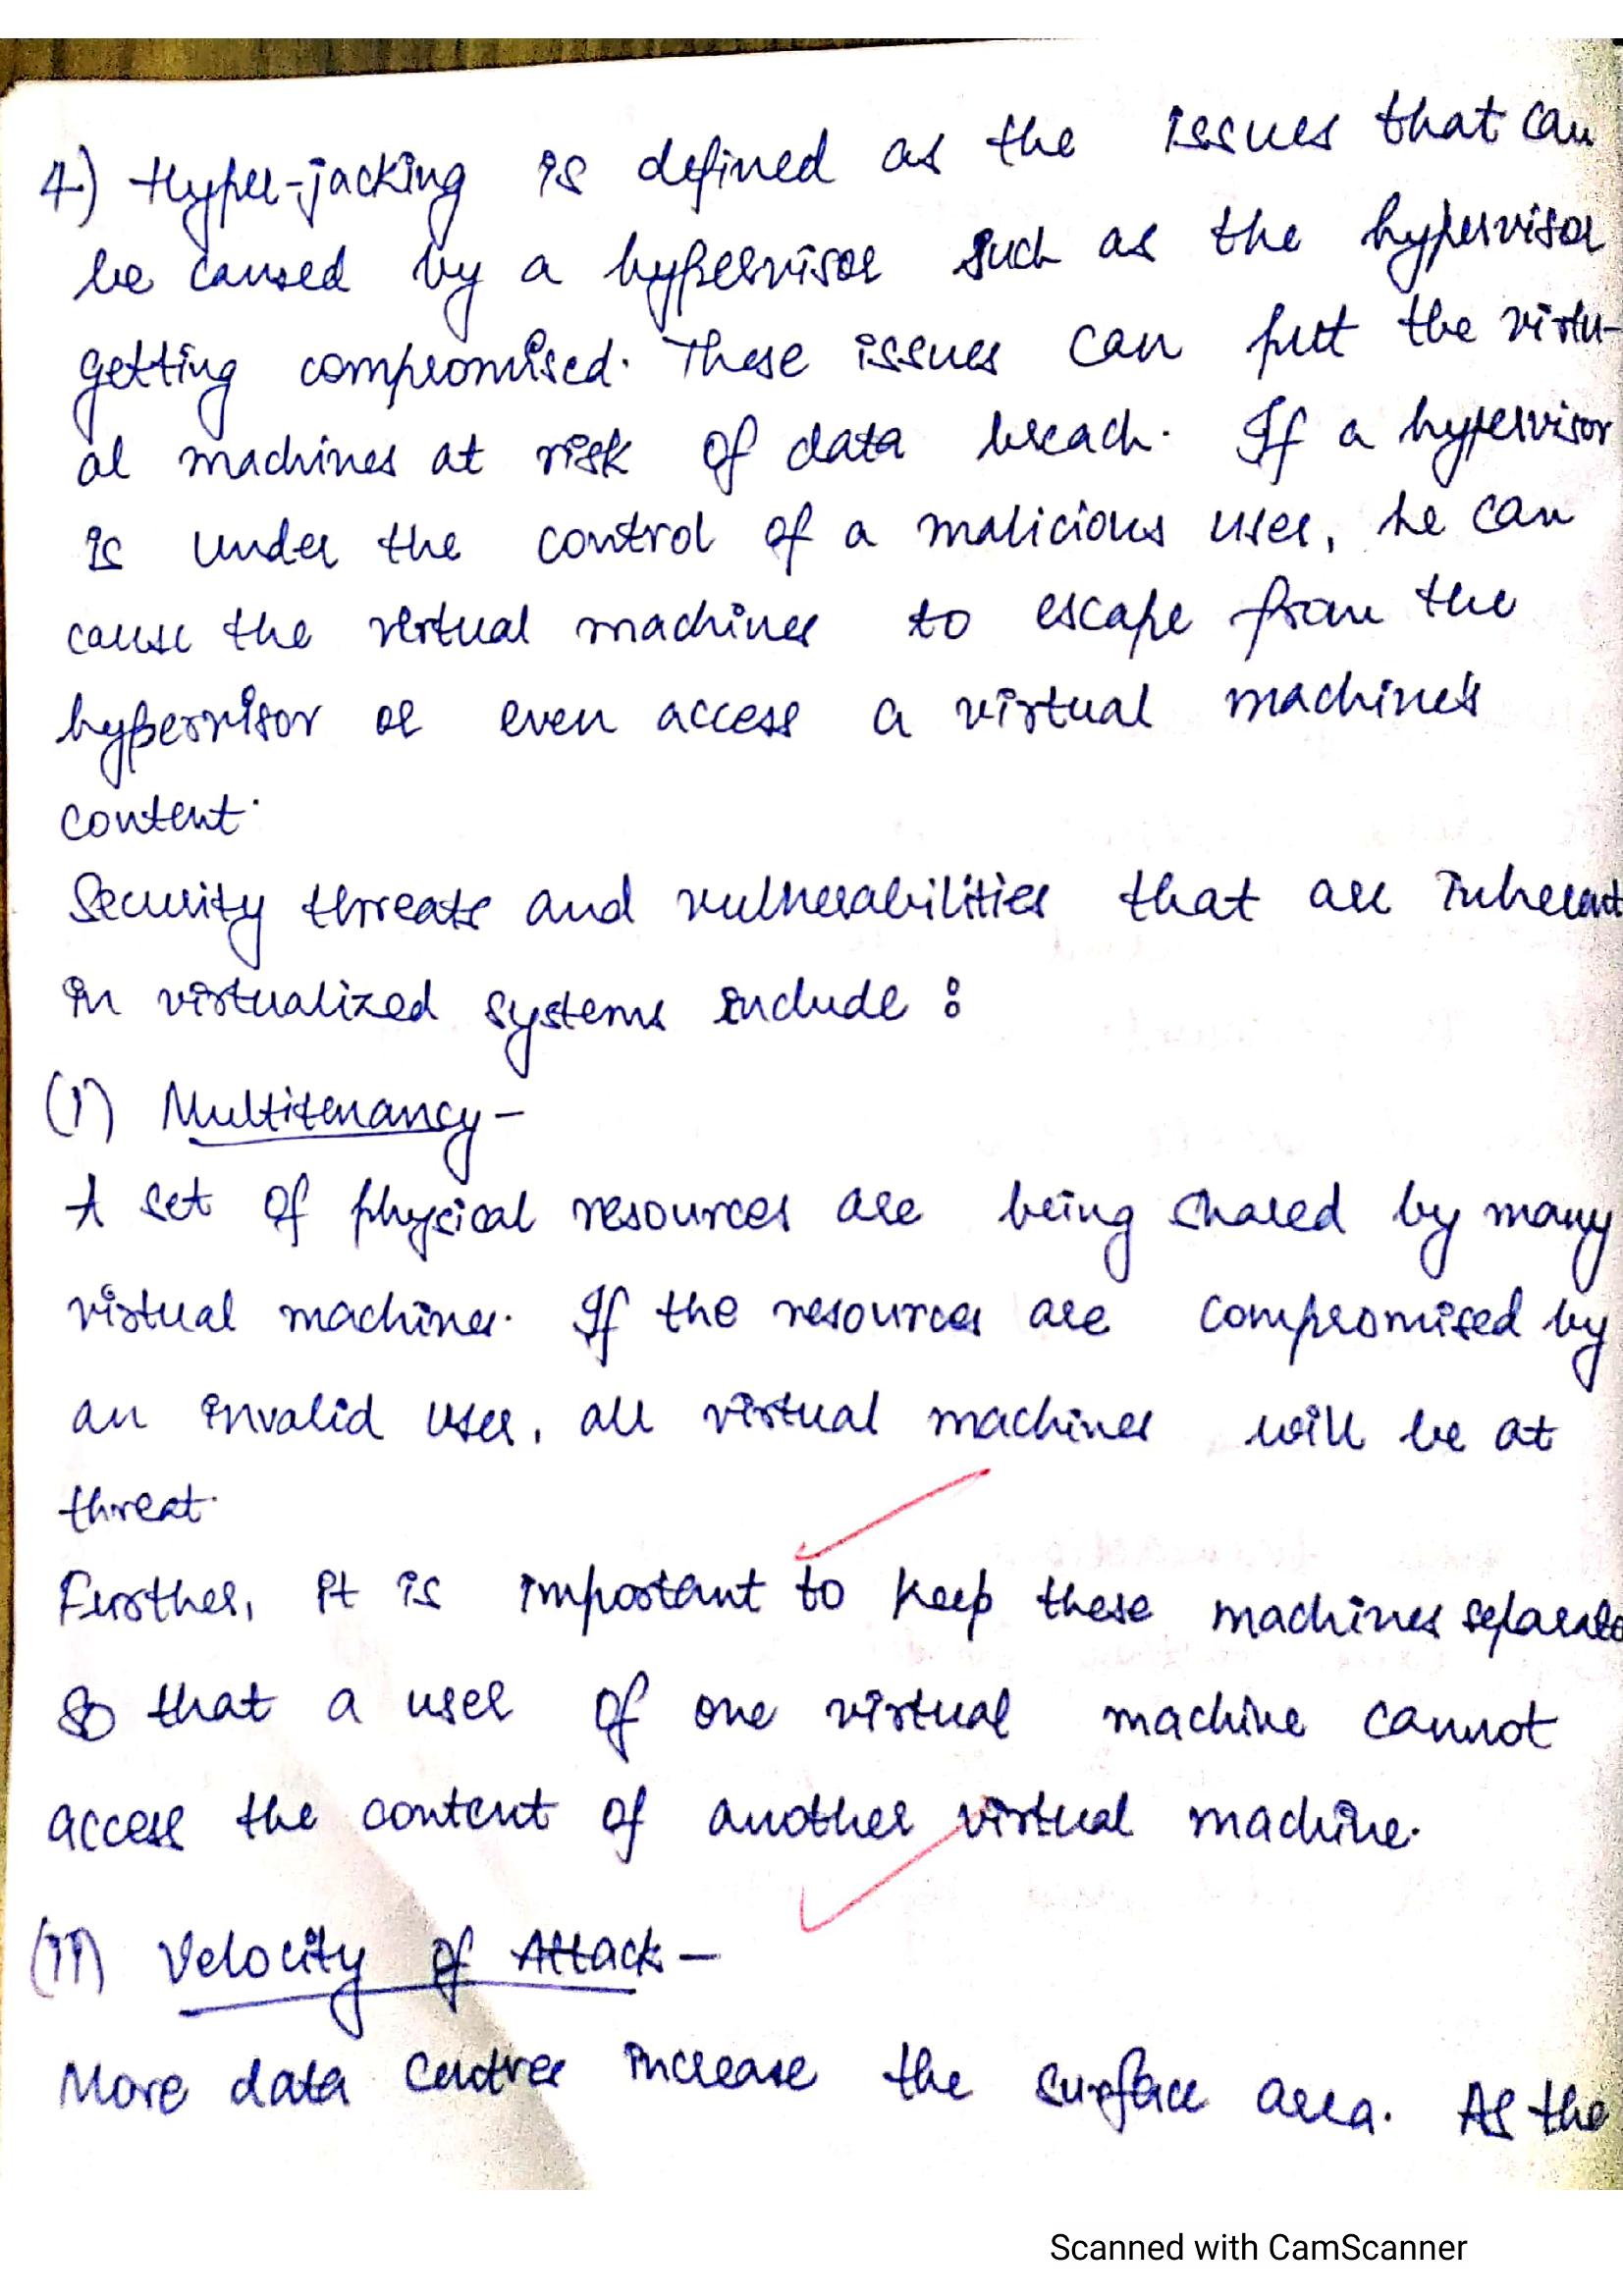 4) Hyper-jacking is defined as the issues that can
be caused by a hypervisor such as the hypervisor
getting compromised. These issues can put the virtu-
al machines at risk of data breach. If a hypervisor
is under the control of a malicious user, he can
cause the virtual machines to escape from the
hypervisor or even access a virtual machine's
content.
Security threats and vulnerabilities that are inherent
in virtualized systems include :
(i) Multitenancy -
A set of physical resources are being shared by many
virtual machines. If the resources are compromised by
an invalid user, all virtual machines will be at
threat.
Further, it is important to keep these machines separate
so that a user of one virtual machine cannot
access the content of another virtual machine.
(ii) Velocity of Attack -
More data centres increase the surface area. As the
Scanned with CamScanner